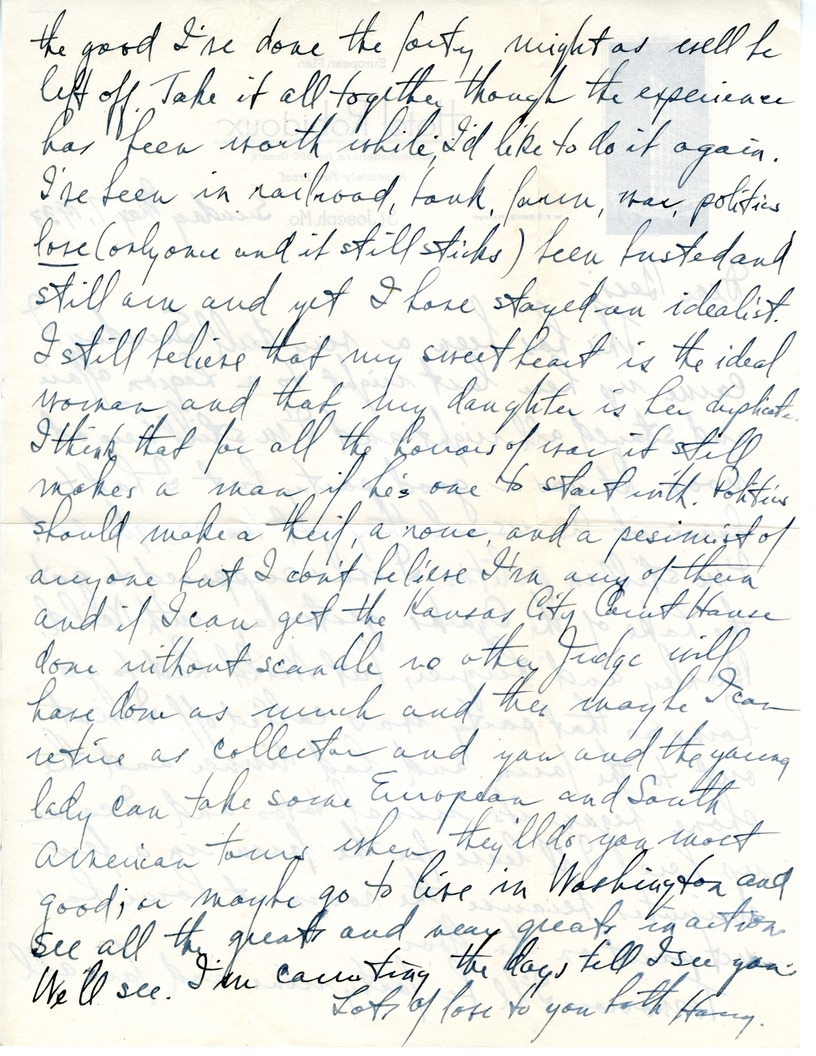 the good I've done the forty might as well be
left off. Take it all together though the experience
has been worth while; I'd like to do it again.
I've been in railroad, bank, farm, war, politics
love (only once and it still sticks) been busted and
still am and yet I have stayed an idealist.
I still believe that my sweetheart is the ideal
woman and that my daughter is her duplicate.
I think that for all the horrors of war it still
makes a man if he's one to start with. Politics
should make a theif, a roue, and a pesimist of
anyone but I don't believe I'm any of them
and if I can get the Kansas City Court House
done without scandle no other Judge will
have done as much and then maybe I can
retire as collector and you and the young
lady can take some European and South
American tours when they'll do you most
good; or maybe go to live in Washington and
see all the greats and near greats in action.
We'll see. I'm counting the days till I see you.
Lots of love to you both Harry.